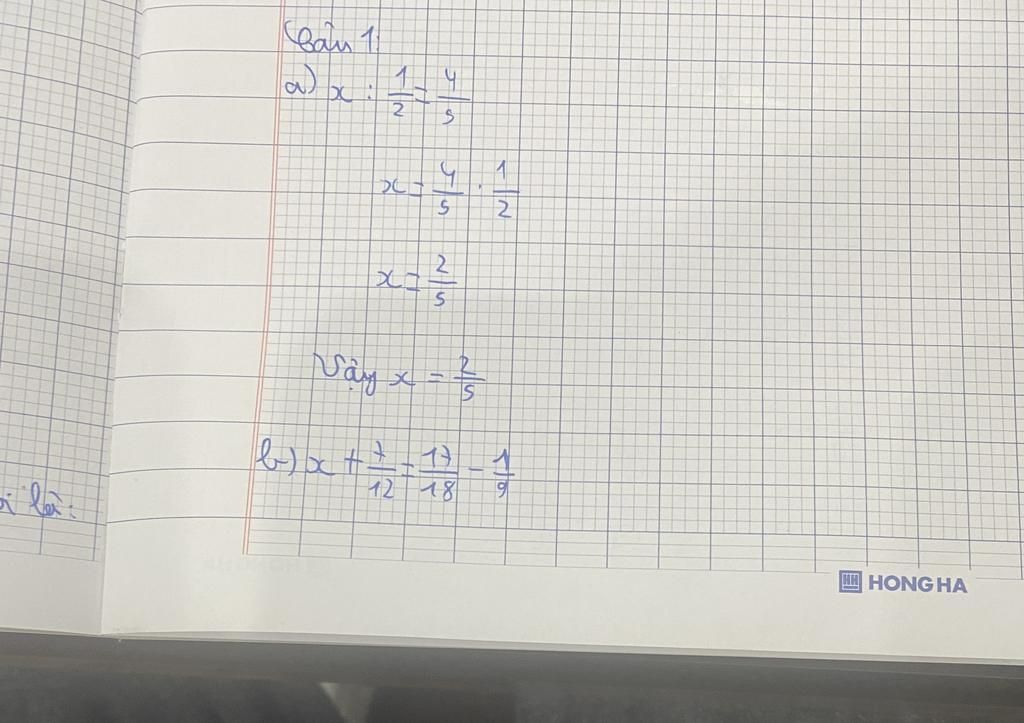 Câu 1:
a) x : 1/2 = 4/5
x = 4/5 . 1/2
x = 2/5
Vậy x = 2/5
b) x + 7/12 = 17/18 - 1/9
là:
HH HONG HA